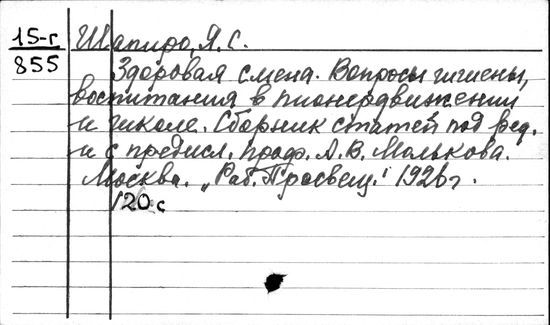 15-г Шапиро, Я. С.
855 Здоровая смена. Вопросы гигиены,
воспитания в пионердвижении
и школе. Сборник статей под ред.
и с предисл. проф. А. В. Молькова.
Москва. „Раб. Просвещ." 1926 г.
120 с